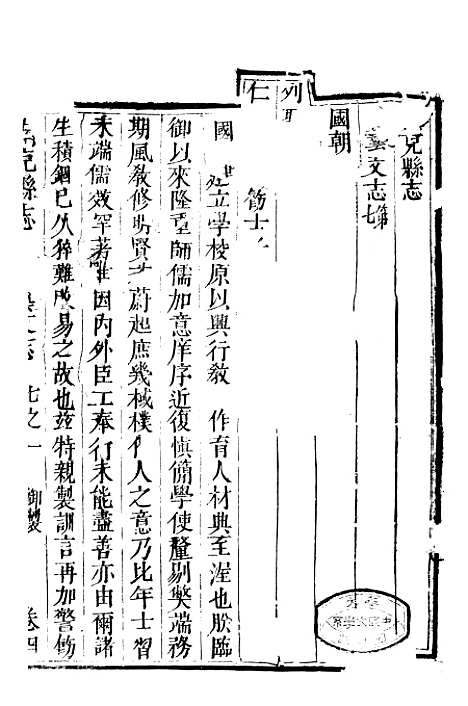 克縣志
藝文志七第
國朝
列
仁
飭士
國 建立學校原以興行敎 作育人材典至渥也朕臨
御以來隆重師儒加意庠序近復愼簡學使釐剔獘端務
期風敎修明賢才蔚起庶幾棫樸作人之意乃比年士習
未端儒效罕著雖因內外臣工奉行未能盡善亦由爾諸
生積錮已久猝難改易之故也兹特親製訓言再加警飭
克縣志 七之一 御製 卷四